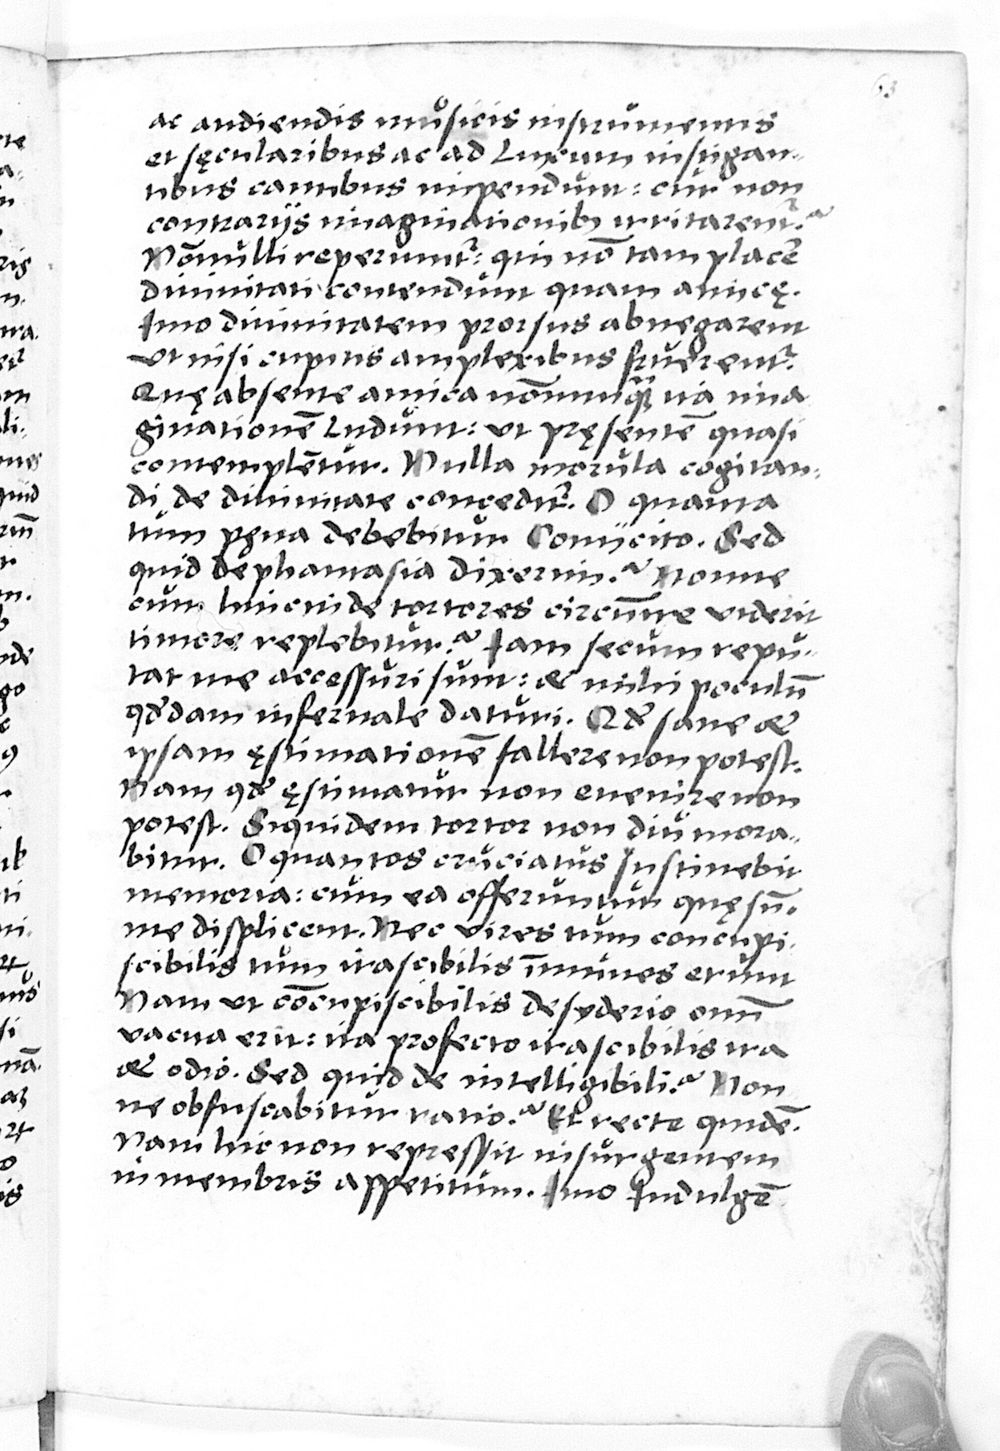 63
ac audiendis musicis instrumentis
et sęcularibus ac ad Luxum instigan-
tibus cantibus inpendunt: cur non
contrarijs imaginationib; irritarent᷑?
Nōnulli reperiunt᷑: qui nō tam placē
diuinitati contendunt quam amicę.
Imo diuinitatem prorsus abnegarent
vt nisi cupitis amplexibus fruerent᷑.
Quę absente amica nōnunqꝫ ita ima
ginationē Ludunt: ut pręsentē quasi
contemplētur. Nulla morula cogitan-
di de diuinitate concedit᷑. O quanta
tum pęna debebitur Comijcito. Sed
quid de phantasia dixerim? Nonne
cum hinc inde tortores circūire viderit
timore replebitur? Iam secum repu-
tat me accessuri sunt: & mihi poculū
qđdam infernale daturi. Qđ sane &
ipsam ęstimationē fallere non potest.
Nam qđ ęstimatur non euenire non
potest. Siquidem tortor non diu mora-
bitur. O quantos cruciatus sustinebit
memoria: cum ea offeruntur quę sū-
me displicent. Nec vires tum concupi-
scibilis tum irascibilis īmunes erunt
Nam vt cōcupiscibilis desyderio omī
vacua erit: ita profecto irascibilis ira
& odio. Sed quid de intelligibili? Non
ne obfuscabitur ratio? Et recte quidē.
Nam hic non repressit insurgentem
in membris appetitum. Imo Indulgē